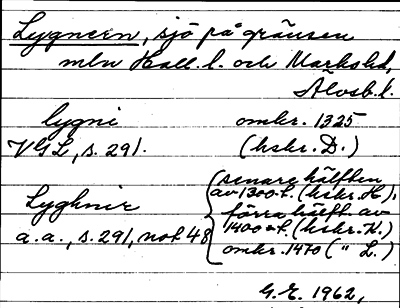 Lygnern, sjö på gränsen
mln Hall. l. och Markshd,
Älvsb. l.
lygni omkr. 1325
VGL, s. 291. (hskr. D.)
Lyghnir (senare hälften
av 1300-t. (hskr. H),
förra hälft. av
a.a., s. 291, not 48 1400-t. (hskr. K.)
omkr. 1470 (" L.)
G.E. 1962,